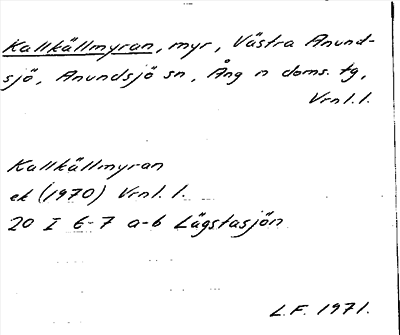 Kallkällmyran, myr, Västra Anund-
sjö, Anundsjö sn, Ång n doms. tg,
Vrnl.l.
Kallkällmyran
ek (1970) Vrnl. l.
20 I 6-7 a-b Lägstasjön
L.F. 1971.